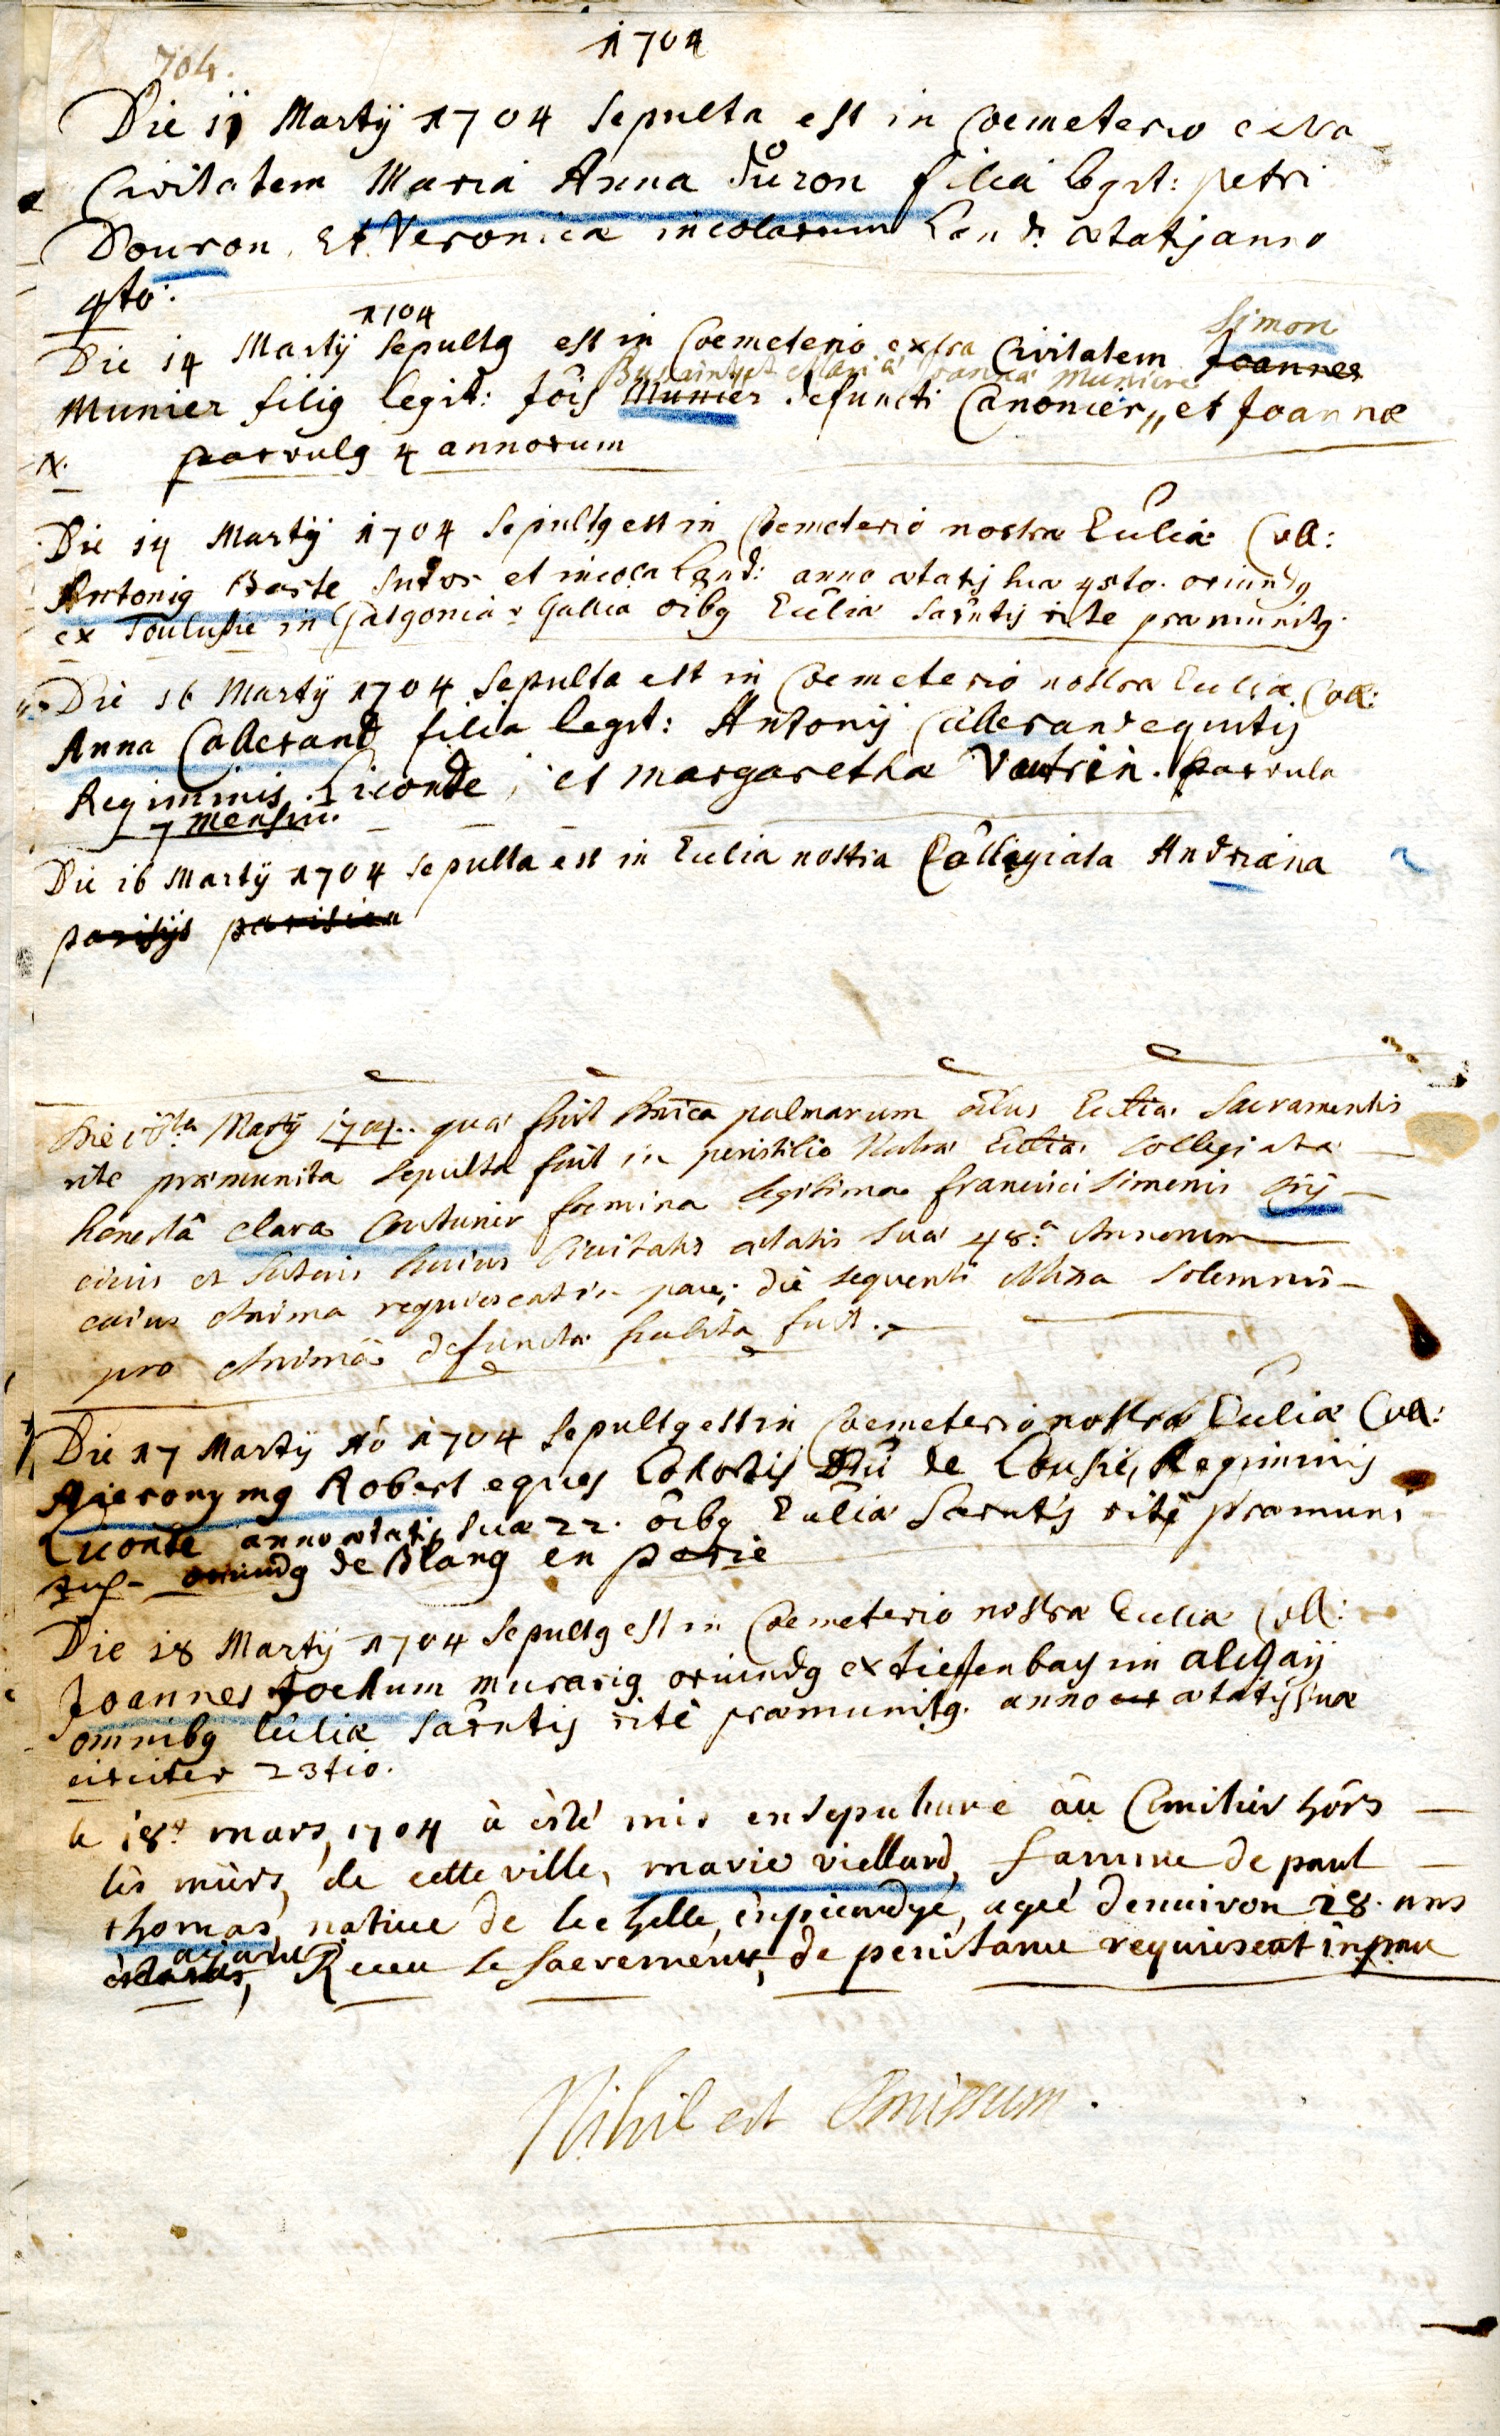 1704
704.
Die 11 Martÿ 1704 Sepulta est in Coemeterio extra
Civitatem Maria Anna Důron filia legit: petri
Douron, Et Veronicæ incolarum Land: ætatis anno
4to.
Die 14 Martÿ 1704 Sepultq est in Coemeterio extra Civitatem Joannes Simon
Munier filiq legit: Jois Munier defuncti Canonier,, et Joannæ
N. parvulq 4 annorum
Maria Joanna Muniere
Die 14 Martÿ 1704 Sepultq est in Coemeterio nostræ Eccliæ Coll:
Antoniq Baste Sutor et incola Land: anno ætatis suæ 4sto. oriundq
ex Toulusse in Gasgonia Gallia oibq Eccliæ Sacrntis rite præmunitq.
Die 16 Martÿ 1704 Sepulta est in Coemeterio nostræ Eccliæ Coll:
Anna Collerand filia legit: Antonÿ Collerand equitis
Regiminis Liconde, et Margarethæ Vautrin. parvula
7 mensiu.
Die 16 Martÿ 1704 sepulta est in Ecclia nostra Collegiata Andriana
parisÿs parisien
Die 16ta Martÿ 1704. qua fuit Dnica palmarum oibus Eccliæ Sacramentis
rite præmunita Sepulta fuit in peristilio Nostræ Eccliæ Collegiatæ
honestâ Clara Coutunir foemina legitima Francisci Simonis
civis et Sutoris huius Civitatis ætatis suæ 48.a Annorum
cuius Anima requiescat in pace; die sequenti Missa Solemnis
pro Animâ defunctæ habita fuit.
Die 17 Martÿ Aō 1704 Sepultq est in Coemeterio nostræ Eccliæ Coll:
Hieronymq Robert eques Cohortis Dni de Coussi, Regiminis
Liconte anno ætatis suæ 22. oibq Eccliæ Sacrntis ritè præmuni
tus. oriundq de Blang en perie
Die 18 Martÿ 1704 Sepultq est in Coemeterio nostræ Eccliæ Coll:
Joannes Jochum murariq oriundq ex tiefenbay im alegaÿ
omnibq Eccliæ Sacrntis ritè præmunitq. anno ætatis suæ
circiter 23tio.
le 18.e mars, 1704 à èsté mis en sepulture âu Cimitier hôrs
lès mürs, de cette ville, marie viellard, famme de paul
thomas, native de lechelle, enpicardÿe, ageé denuiron 28. ans
ayant Receu le sacrement, de penitance requiescat in pace
Nihil est Omissum.